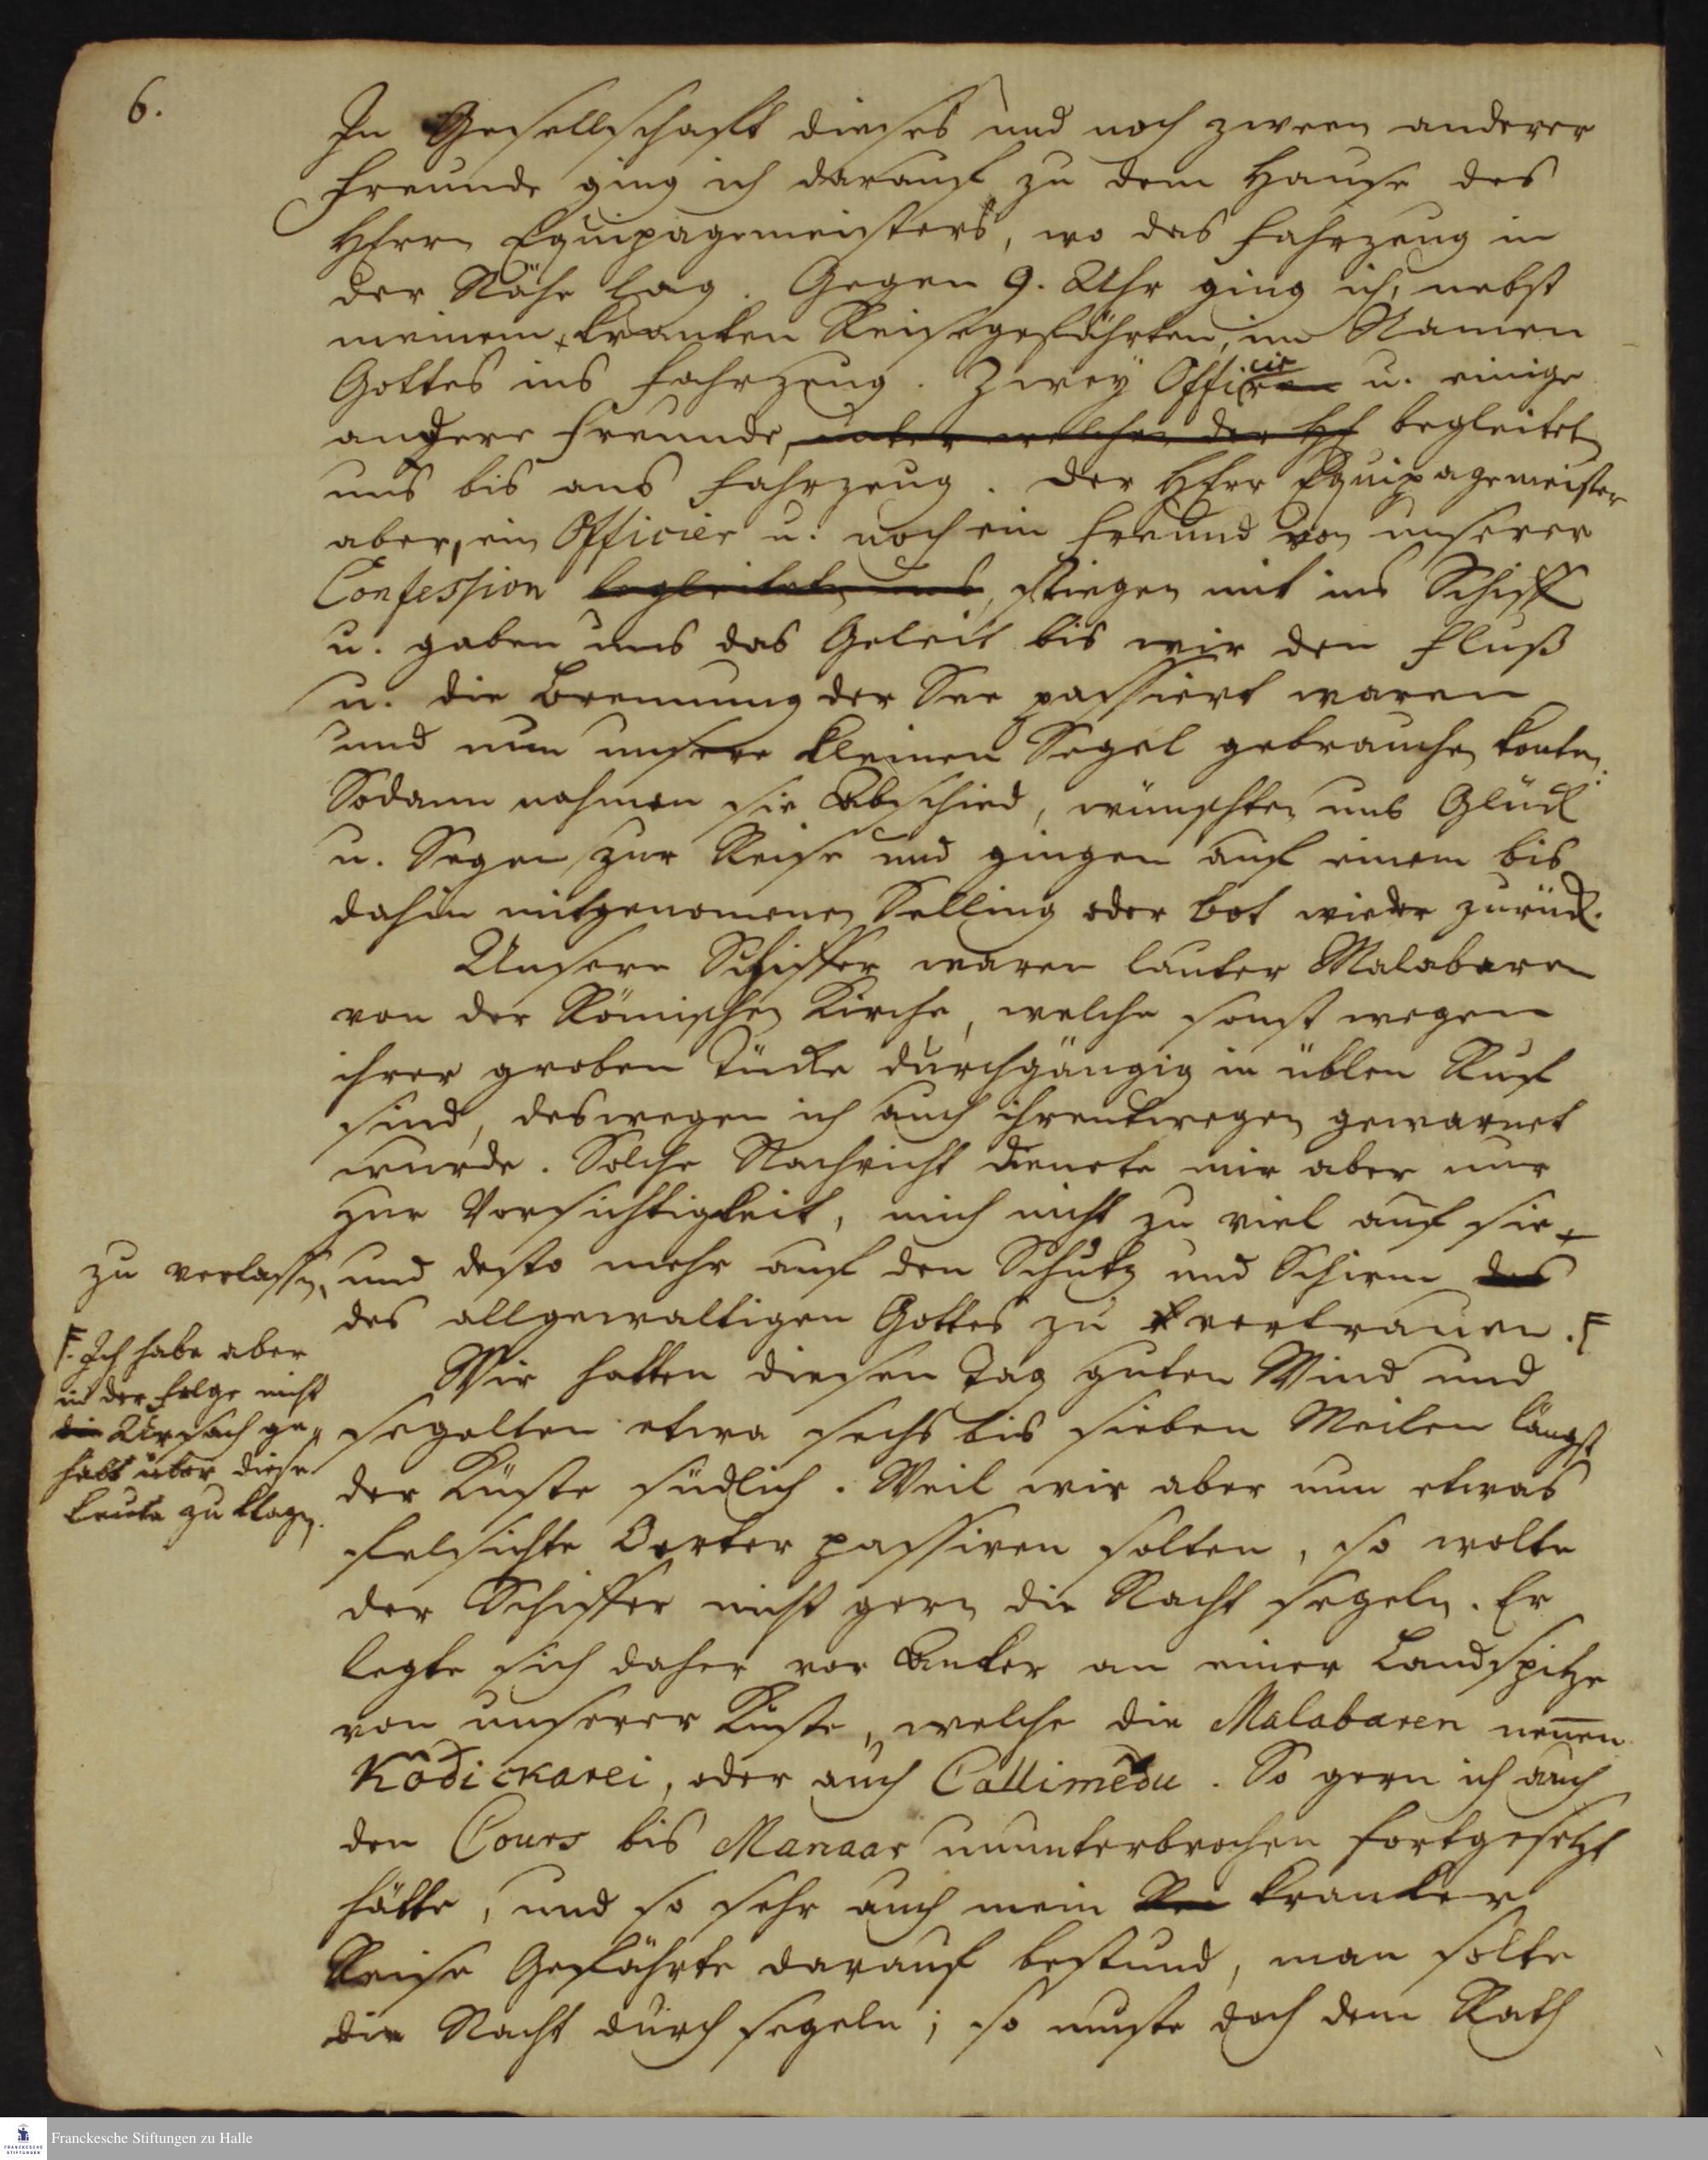 6.
In Gesellschaft dieses und noch zween anderer
Freunde ging ich darauf zu dem Hause des
HErrn Equipagemeisters, wo das Fahrzeug in
der Nähe lag. Gegen 9. Uhr ging ich, nebst
meinem kranken Reisegefährten, im Namen
Gottes ins Fahrzeug. Zwey Officier u. einige
andere Freunde, unter welchen der HE begleiteten
uns bis ans Fahrzeug. Der HErr Equipagemeister
aber, ein Officier u. noch ein Freund von unserer
Confession begleiteten uns, stiegen mit ins Schiff
u. gaben uns das Geleit bis wir den Fluß
u. die Brennung der See passiert waren
und nun unsere kleinen Segel gebrauchen konten.
Sodann nahmen sie Abschied, wünschten uns Glück
u. Segen zur Reise und gingen auf einem bis
dahin mitgenomenen Selling oder Bot wieder zurück.
Unsere Schiffer waren lauter Malabaren
von der Römischen Kirche, welche sonst wegen
ihrer groben Tücke durchgängig in üblen Ruf
sind, deswegen ich auch ihrentwegen gewarnet
wurde. Solche Nachricht dienete mir aber nur
zur Vorsichtigkeit, mich nicht zu viel auf sie
zu verlassen, und desto mehr auf den Schutz und Schirm des
des allgewaltigen Gottes zu vertrauen. F
F. Ich habe aber
in der Folge nicht
die Ursach ge-
habt über diese
Leute zu klagen.
Wir hatten diesen Tag guten Wind und
segelten etwa sechs bis sieben Meilen längst
der Küste südlich. Weil wir aber nun etwas
felsichte Oerter passiren solten, so wolte
der Schiffer nicht gern die Nacht segeln. Er
legte sich daher vor Anker an einer Landspitze
von unserer Küste, welche die Malabaren nen̅en
Kôdickarei, oder auch Callimêdu. So gern ich auch
den Cours bis Manaar ununterbrochen fortgesetzt
hätte, und so sehr auch mein Rei kranker
Reise Gefährte darauf bestund, man solte
die Nacht durch segeln; so muste doch dem Rath
Franckesche Stiftungen zu Halle